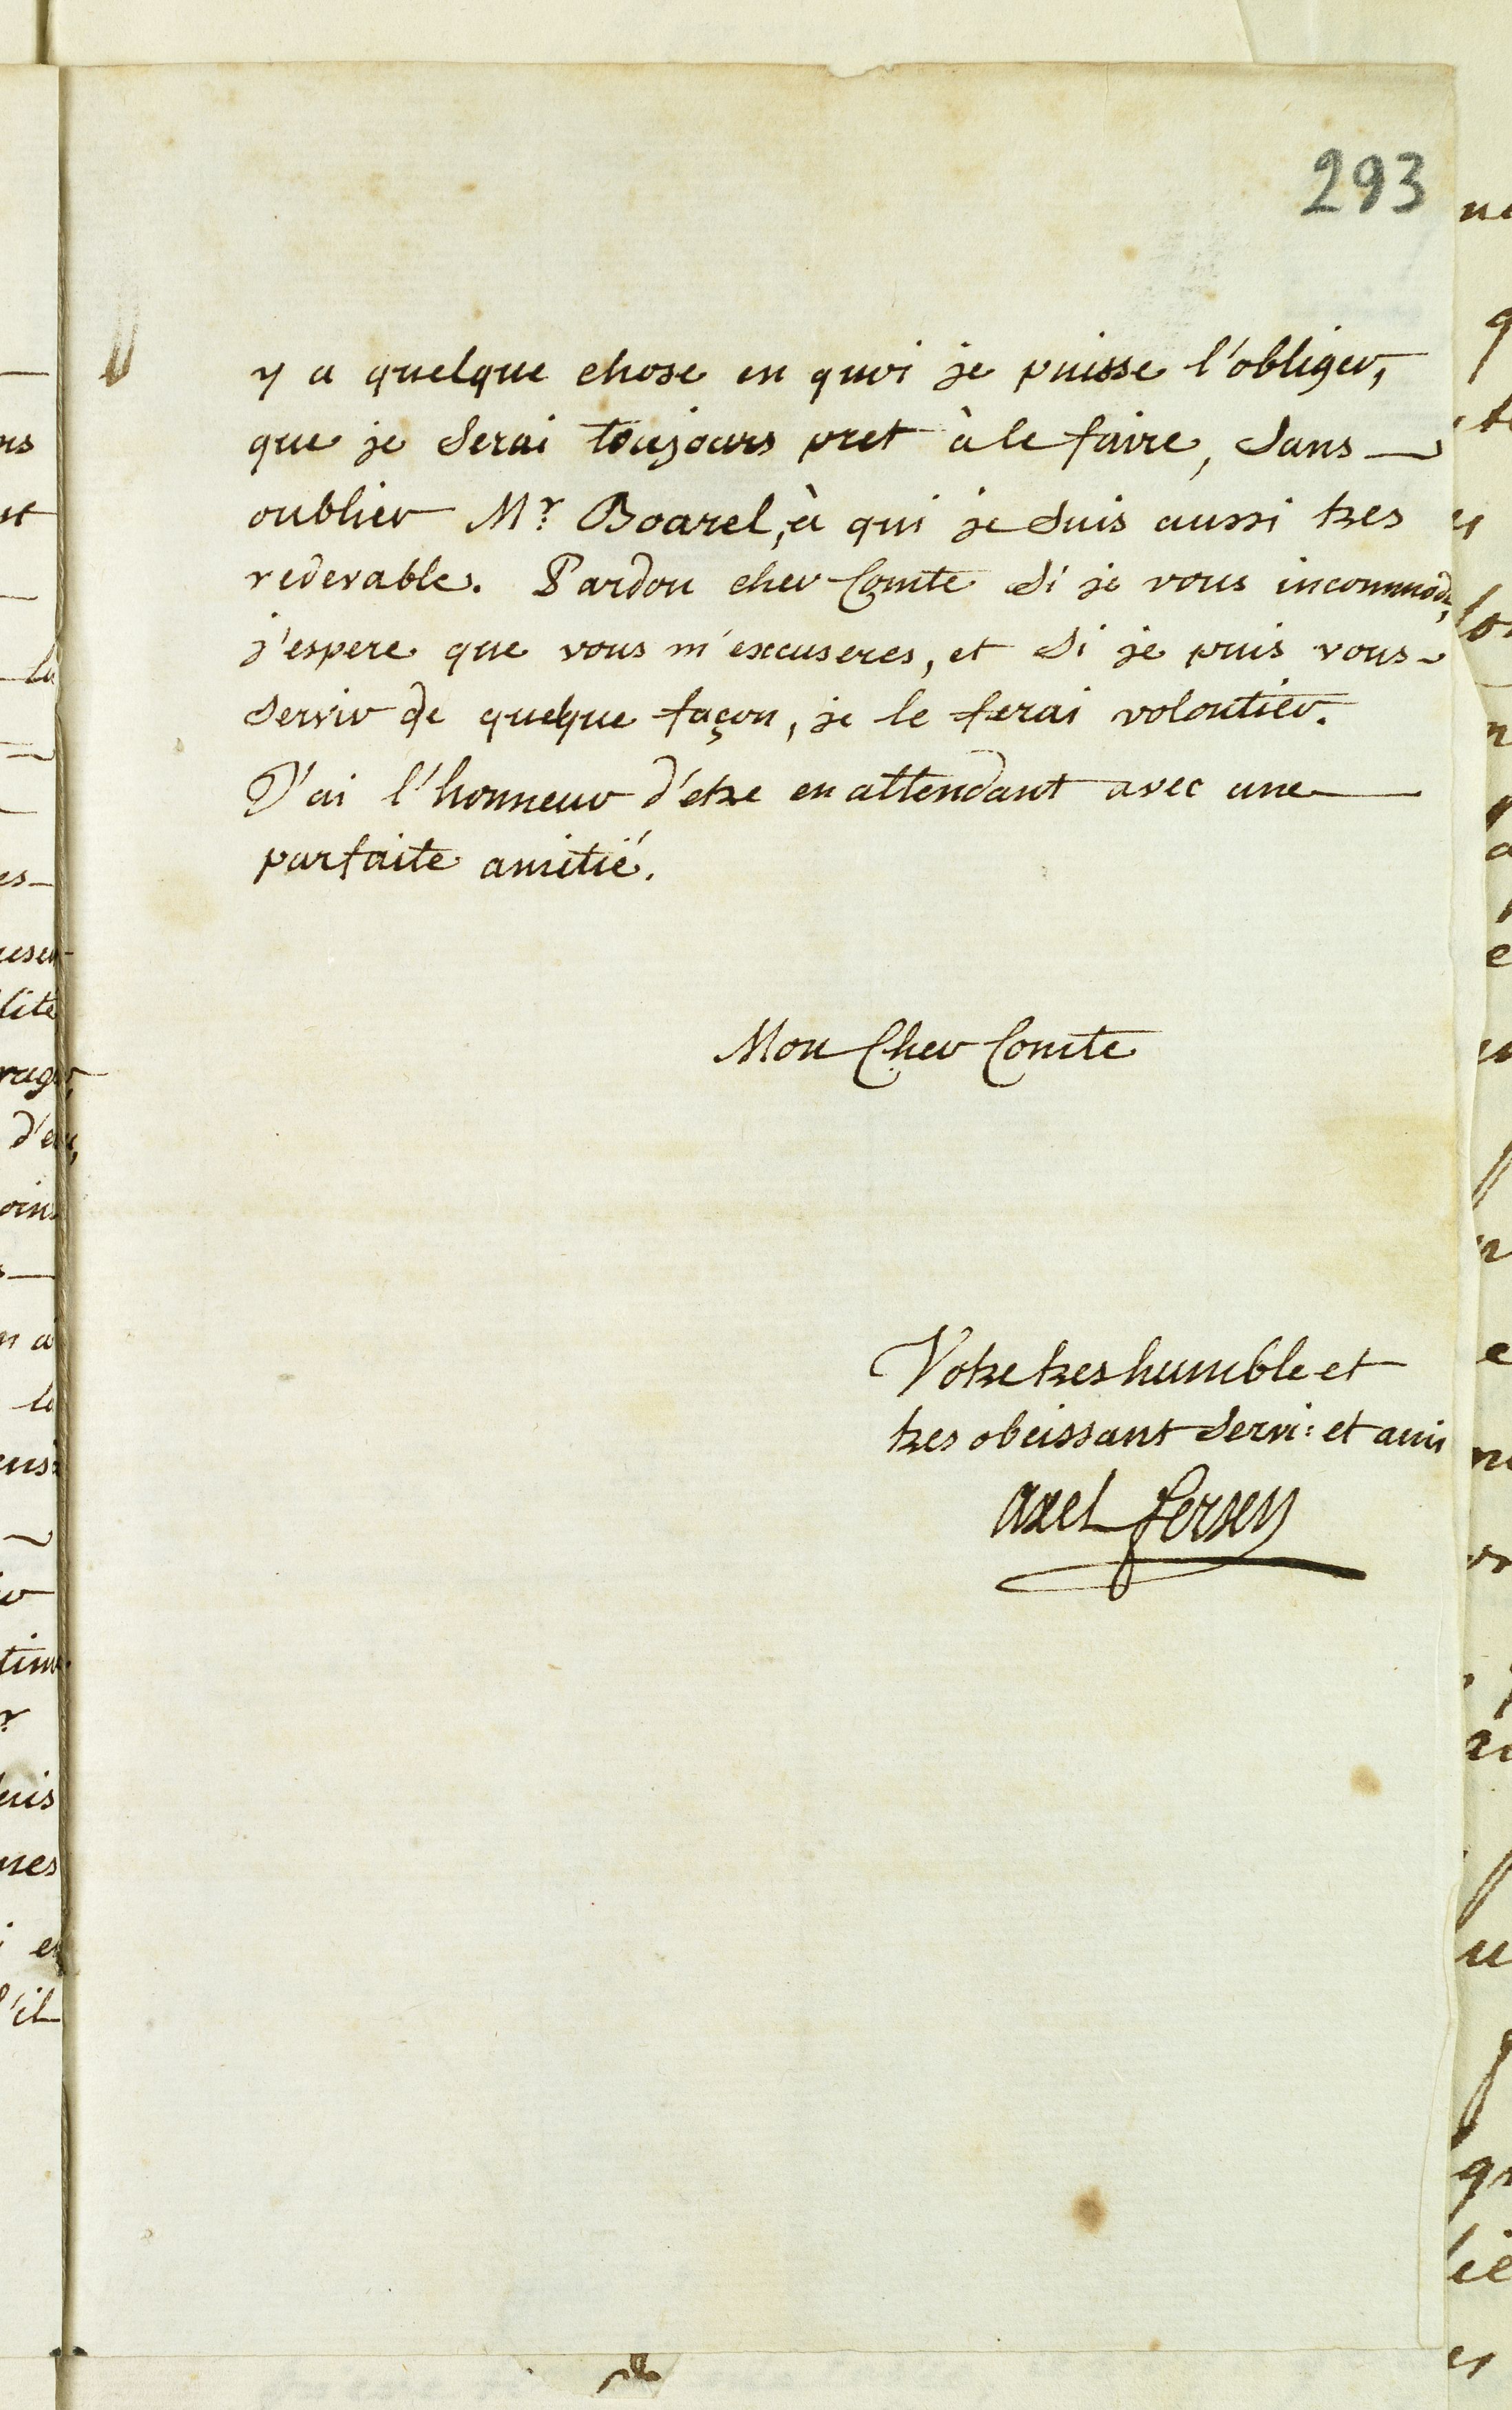 293
y a quelque chose en quoi je puisse l'obliger,
que je serai toujours pret à le faire, sans
oublier Mr. Boarel, à qui je suis aussi tres
redevable. Pardon cher Comte si je vous incommode,
j'espere que vous m'excuseres, et si je puis vous
servir de quelque façon, je le ferai volontier.
J'ai l'honneur d'etre en attendant avec une
parfaite amitié.
Mon Cher Comte
Votre tres humble et
tres obeissant servi: et ami
Axel Fersen